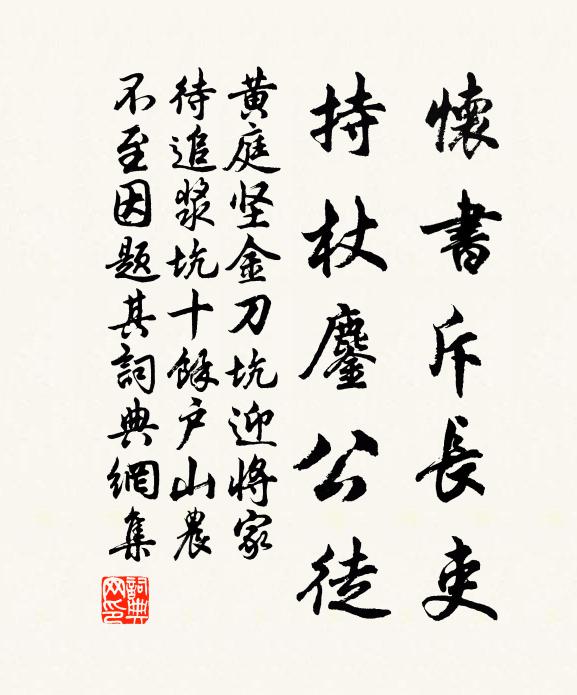 懷書斥長吏
持杖鏖公徒
黄庭坚金刀坑迎將家
待追漿坑十餘户山農
不至因題其詞典網集
詞典网印